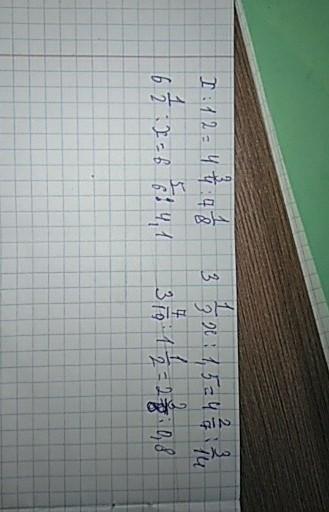 x : 12 = 4 2/7 : 4 1/8  3 1/3 x : 1,5 = 4 2/7 : 3/14
6 1/2 : x = 6 5/6 : 4,1  3 : 1 1/2 = : 0,8